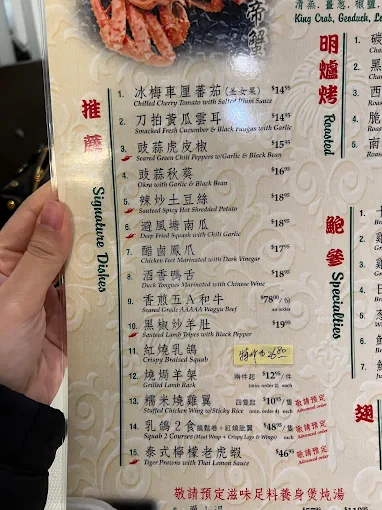 帝蟹
King Crab, Geoduck, Lo
推薦
Signature Dishes
1. 冰梅車厘蕃茄(圣女果) $14.95
Chilled Cherry Tomato with Salted Plum Sauce
2. 刀拍黃瓜雲耳 $14.95
Smacked Fresh Cucumber & Black Fungus with Garlic
3. 豉蒜虎皮椒 $15.95
Seared Green Chili Peppers w/Garlic & Black Bean
4. 豉蒜秋葵 $16.95
Okra with Garlic & Black Bean
5. 辣炒土豆絲 $18.95
Sauteed Spicy Hot Shredded Potato
6. 避風塘南瓜 $18.95
Deep Fried Squash with Chili Garlic
7. 醋鹵鳳爪 $17.95
Chicken Feet Marinated with Dark Vinegar
8. 酒香鴨舌 $18.95
Duck Tongues Marinated with Chinese Wine
9. 香煎五A和牛 $78.00/份
Seared Grade AAAAA Wagyu Beef an order
10. 黑椒炒羊肚 $19.95
Sauteed Lamb Tripes with Black Pepper
11. 紅燒乳鴿
Crispy Braised Squab
12. 燒焗羊架 兩件起 $12.95/件
Grilled Lamb Rack (min. order 2) each
13. 糯米燒雞翼 四隻起 $10.95/隻 敬請預定
Stuffed Chicken Wing w/Sticky Rice (min. order 4) each Advanced order
14. 乳鴿2食 $48.00/隻 敬請預定
Squab 2 Courses (Meat Wrap + Crispy Legs & Wings) each Advanced order
15. 泰式檸檬老虎蝦 $46.95 敬請預定
Tiger Prawns with Thai Lemon Sauce Advanced order
敬請預定滋味足料養身煲炖湯
明爐烤
Roasted
1.
2.
3.
4.
5.
鮑參
Specialties
1.
2.
3.
4.
5.
6.
7.
翅